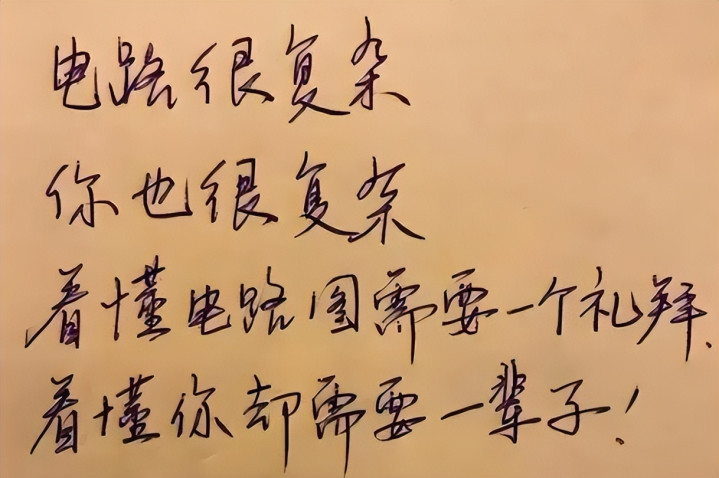 电路很复杂
你也很复杂
看懂电路图需要一个礼拜、
看懂你却需要一辈子!